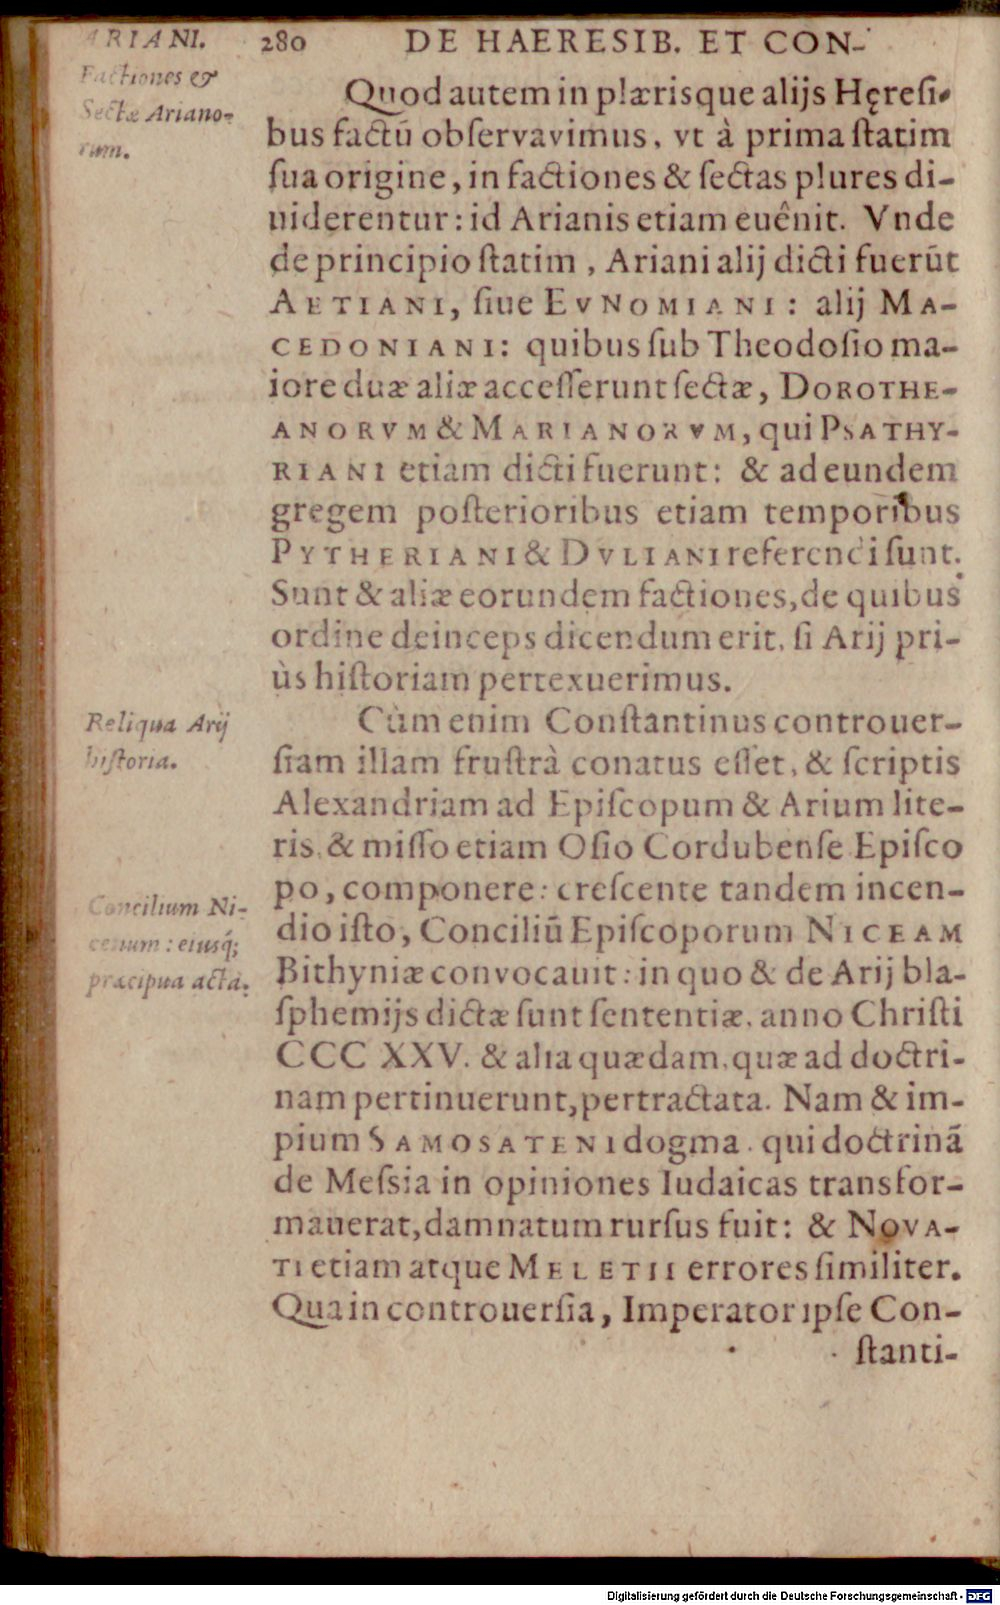 ARIANI. 280 DE HAERESIB. ET CON-
Factiones &
Sectæ Ariano-
rum.
Quod autem in plærisque alijs Hęreſi-
bus factū obſervavimus, vt à prima ſtatim
ſua origine, in factiones & ſectas plures di-
uiderentur: id Arianis etiam euênit. Vnde
de principio ſtatim, Ariani alij dicti fuerūt
AETIANI, ſiue EVNOMIANI: alij MA-
CEDONIANI: quibus ſub Theodoſio ma-
iore duæ aliæ acceſſerunt ſectæ, DOROTHE-
ANORVM & MARIANORVM, qui PSATHY-
RIANI etiam dicti fuerunt: & ad eundem
gregem poſterioribus etiam temporibus
PYTHERIANI & DVLIANI referendi ſunt.
Sunt & aliæ eorundem factiones, de quibus
ordine deinceps dicendum erit, ſi Arij pri-
ùs hiſtoriam pertexuerimus.
Reliqua Arij
hiſtoria.
Cùm enim Conſtantinus controuer-
ſiam illam fruſtrà conatus eſſet, & ſcriptis
Alexandriam ad Epiſcopum & Arium lite-
ris, & miſſo etiam Oſio Cordubenſe Epiſco
po, componere: creſcente tandem incen-
dio iſto, Conciliū Epiſcoporum NICEAM
Bithyniæ convocauit: in quo & de Arij bla-
ſphemijs dictæ ſunt ſententiæ, anno Chriſti
CCC XXV. & alia quædam, quæ ad doctri-
nam pertinuerunt, pertractata. Nam & im-
pium SAMOSATENI dogma, qui doctrinā
de Meſsia in opiniones Iudaicas transfor-
mauerat, damnatum rurſus fuit: & NOVA-
TI etiam atque MELETII errores ſimiliter.
Qua in controuerſia, Imperator ipſe Con-
ſtanti-
Concilium Ni-
cenum: eiusq́;
præcipua acta.
Digitalisierung gefördert durch die Deutsche Forschungsgemeinschaft - DFG